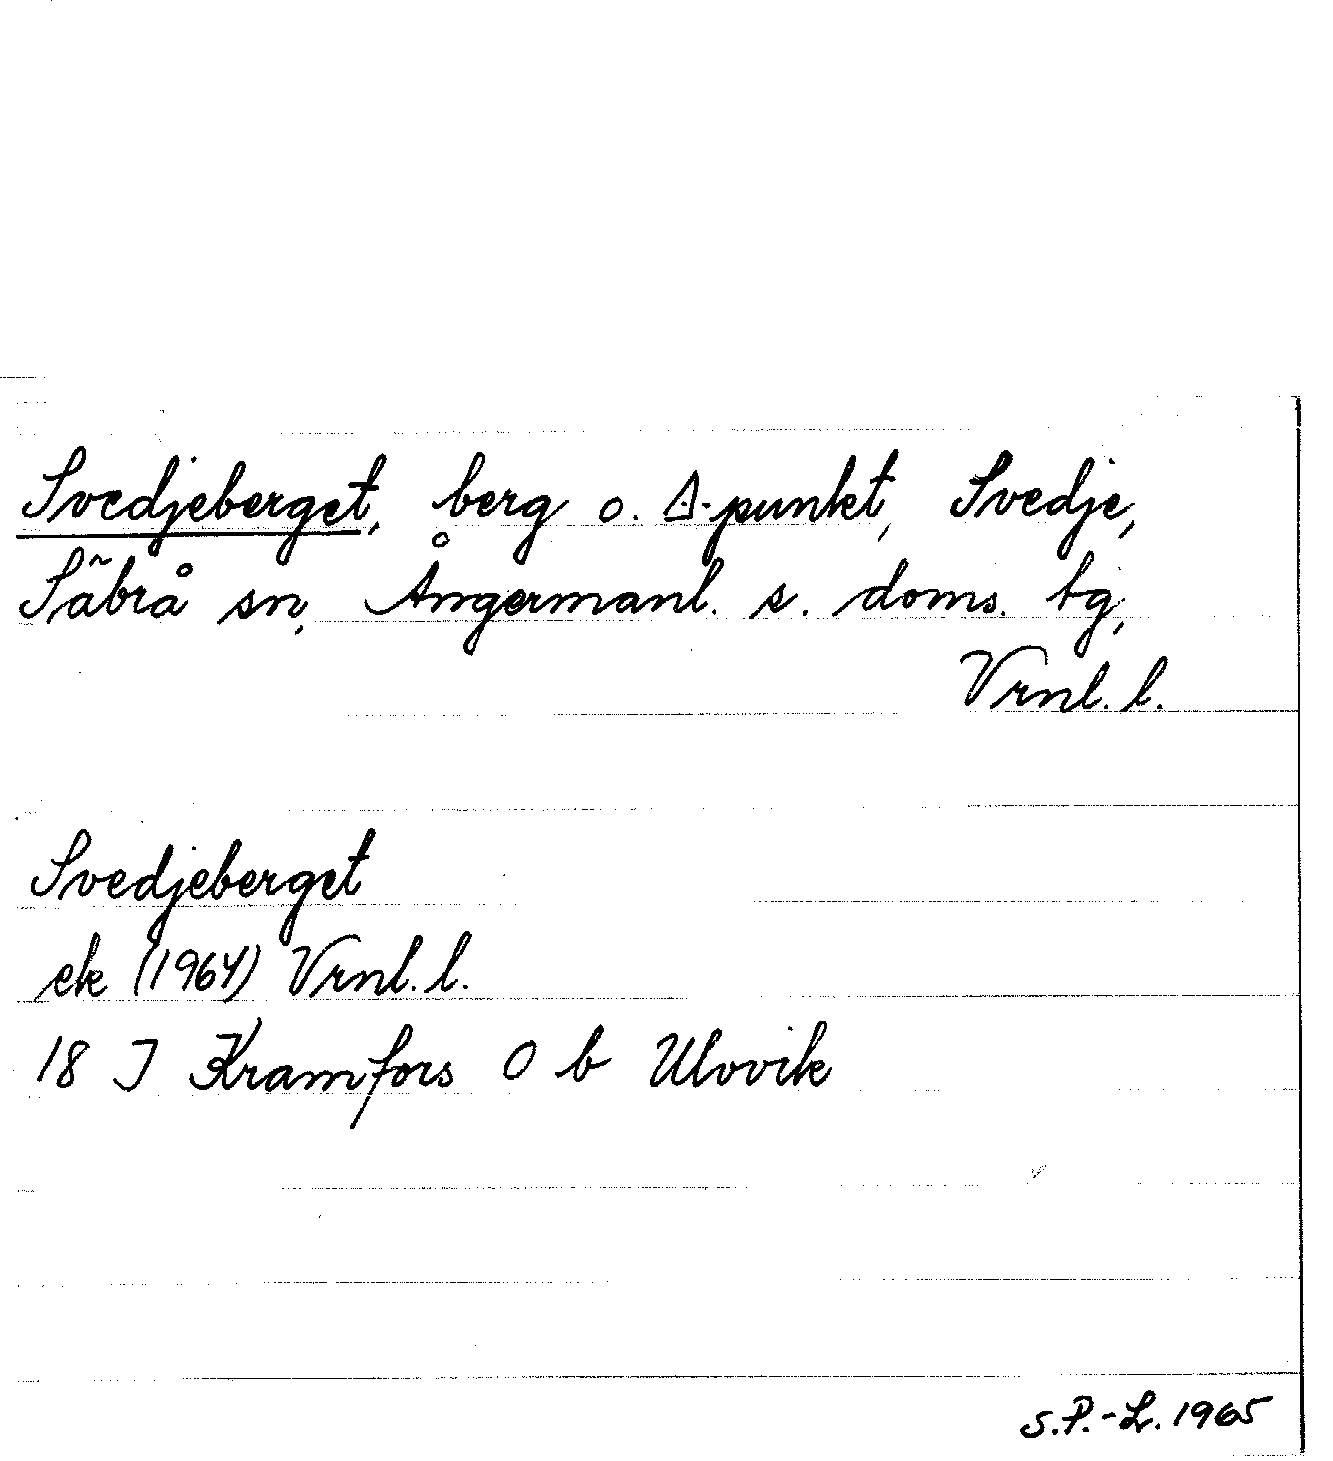 Svedjeberget, berg o. Δ-punkt, Svedje,
Säbrå sn, Ångermanl. s. doms. tg,
Vrnl. l.
Svedjeberget
ek (1964) Vrnl. l.
18 J Kramfors O b Ulvvik
S.P.-L. 1965